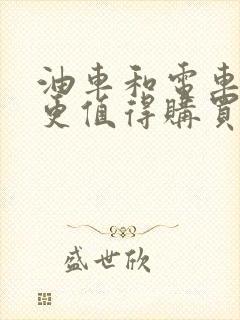 油車和電車
更值得購買
盛世欣